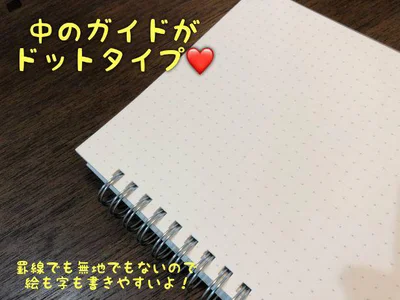 中のガイドが
ドットタイプ❤️
罫線でも無地でもないので
絵も字も書きやすいよ！